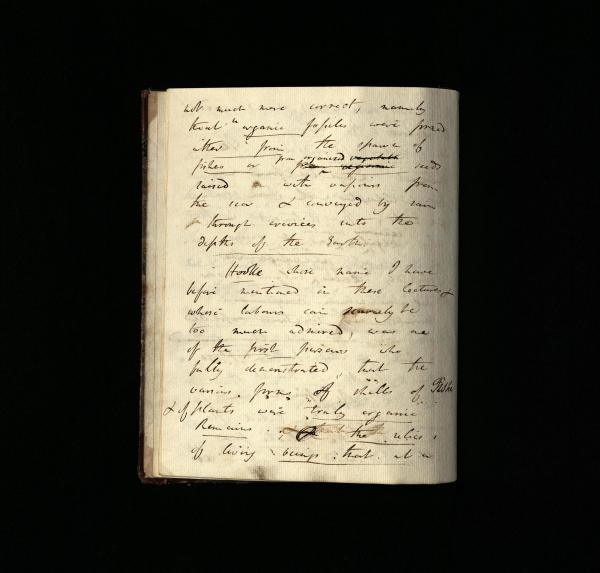 not much more correct, namely
that organic fossiles were formed
either from the spawn of
fishes or from organised seeds
raised with vapours from
the sea & conveyed by rain
through crevices into the
depths of the Earth.
Hooke whose name I have
before mentioned in these lectures &
whose labours can scarcely be
too much admired, was one
of the first persons who
fully demonstrated, that the
various forms of shells of Fishes
& of plants were truly organic
Remains. the relics
of living beings that at a